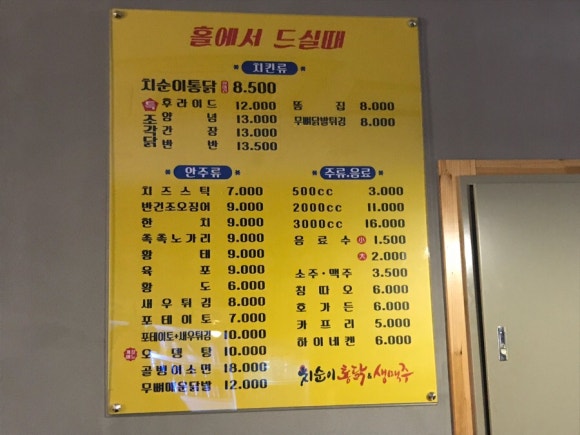 홀에서 드실때
치킨류
치순이통닭 8.500
특 후라이드 12.000
조 양념 13.000
각 간장 13.000
닭 반반 13.500
똥집 8.000
무뼈닭발튀김 8.000
안주류
치즈스틱 7.000
반건조오징어 9.000
한치 9.000
족족노가리 9.000
황태 9.000
육포 9.000
황도 6.000
새우튀김 8.000
포테이토 7.000
포테이토+새우튀김 10.000
오뎅탕 10.000
골뱅이소면 18.000
무뼈매운닭발 12.000
주류.음료
500cc 3.000
2000cc 11.000
3000cc 16.000
음료수 小 1.500
大 2.000
소주·맥주 3.500
칭따오 6.000
호가든 6.000
카프리 5.000
하이네켄 6.000
치순이 통닭&생맥주